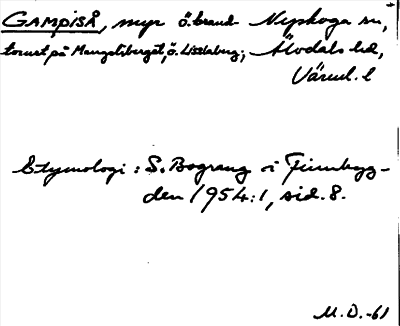 GAMPISÅ, myr ö. brand Nyskoga sn,
torvut på Mangslidberget, ö. Lisslaberg; Älvdals hd,
Värml. l
Etymologi: S. Bograng i Finnbyg-
den 1954:1, sid. 8.
M.O.-61